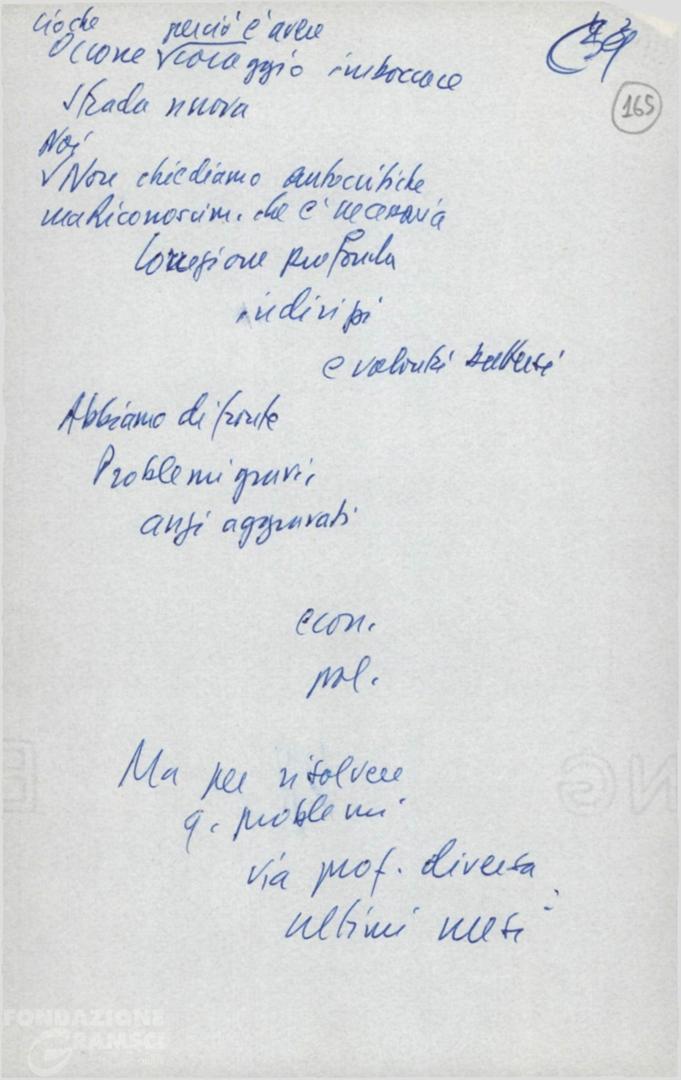 Ciò che perciò è avere
Occorre coraggio imboccare
strada nuova
Noi
Non chiediamo autocritiche
ma riconoscim. che è necessaria
Correzione profonda
indirizzi
e volontà
Abbiamo di fronte
Problemi gravi,
anzi aggravati
econ.
pol.
Ma per risolvere
q. problemi
via prof. diversa
ultimi mesi
165
FONDAZIONE
GRAMSCI